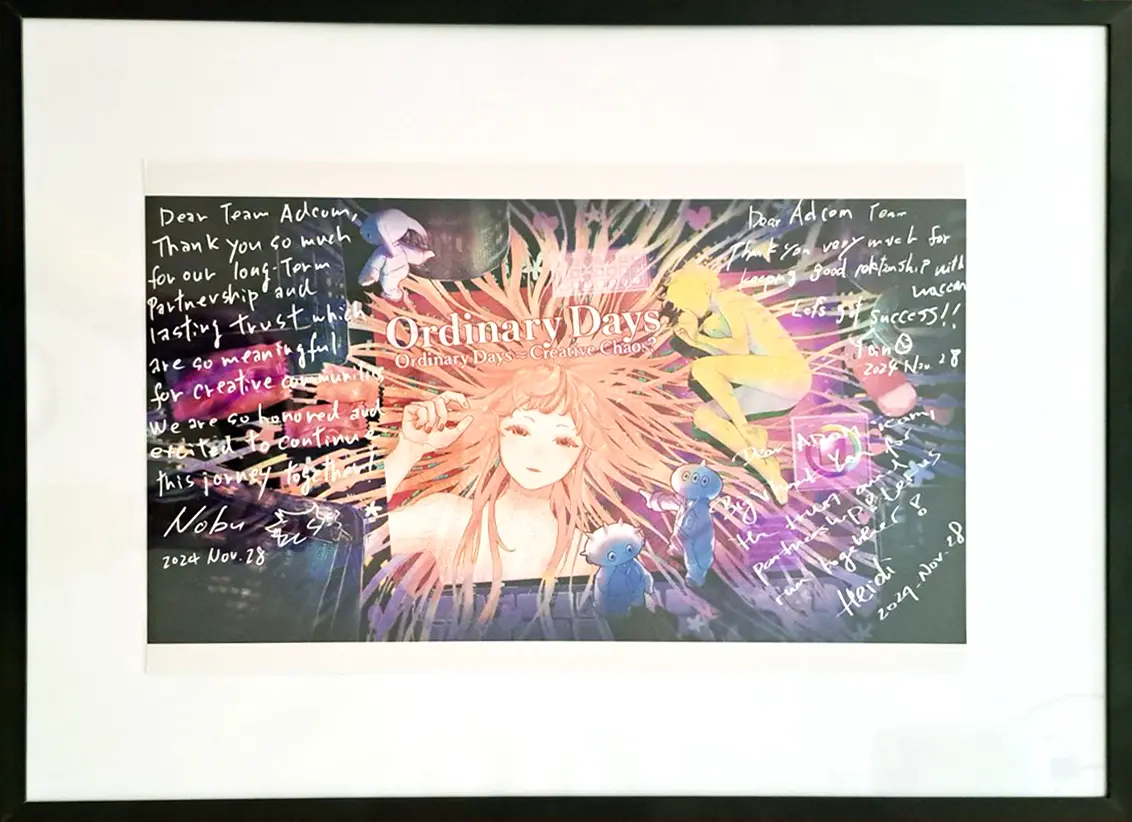 Dear Team Adcom,
Thank you so much
for our long-Term
Partnership and
lasting trust which
are so meaningful
for creative communities
We are so honored and
excited to continue
this jorney together!
Nobu
2024 Nov. 28
Ordinary Days
Ordinary Days = Creative Chaos?
Dear Adcom Team
Thank you very much for
keeping good relationship with
wacom
Let's get success!!
2024 Nov. 28
Dear
Big thank you for
the trust and
partnership Let us
run together!
Heidi
2024. Nov. 28